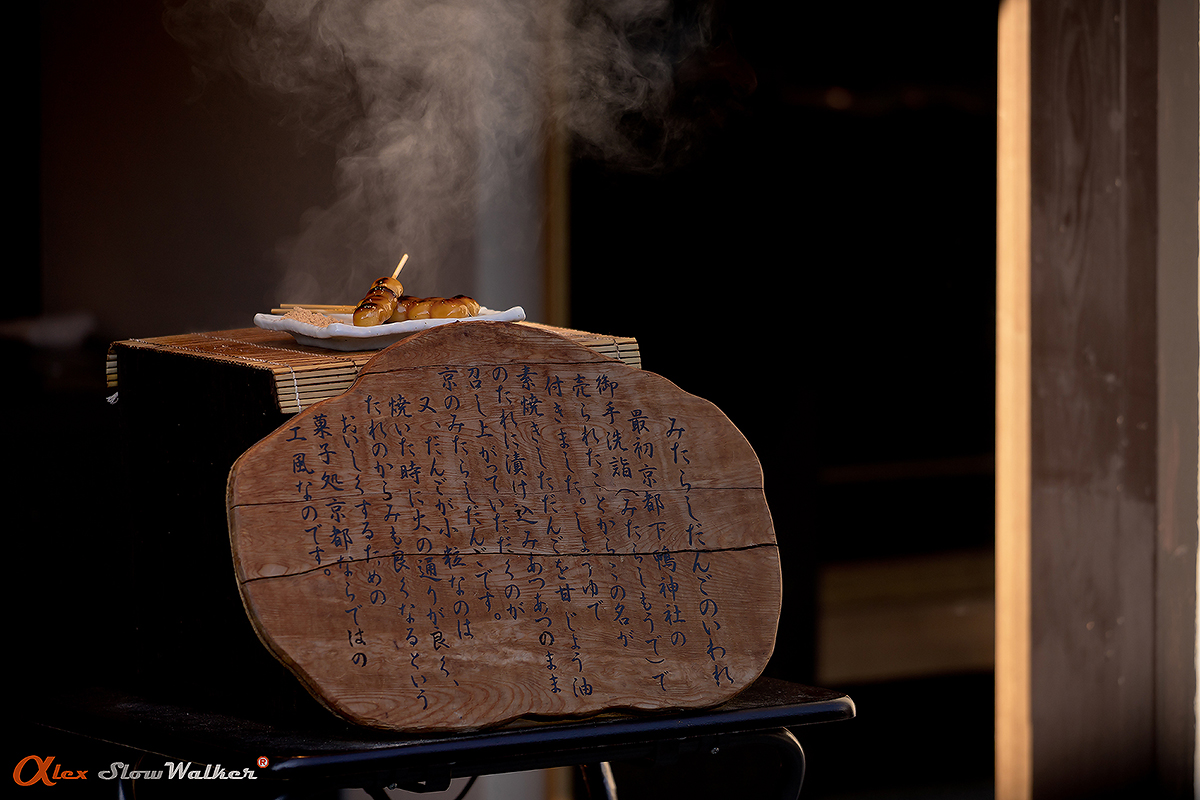 みたらしだんごのいわれ
最初京都下鴨神社の
御手洗詣(みたらしもうで)で
売られたことからこの名が
付きました。しょうゆで
素焼きしただんごを甘じょう油
のたれに漬け込みあつあつのまま
召し上がっていただくのが
京のみたらしだんごです。
又、だんごが小粒なのは
焼いた時に火の通りが良く、
たれのからみも良くなるという
おいしくするための
菓子処京都ならではの
工風なのです。
αlex SlowWalker®